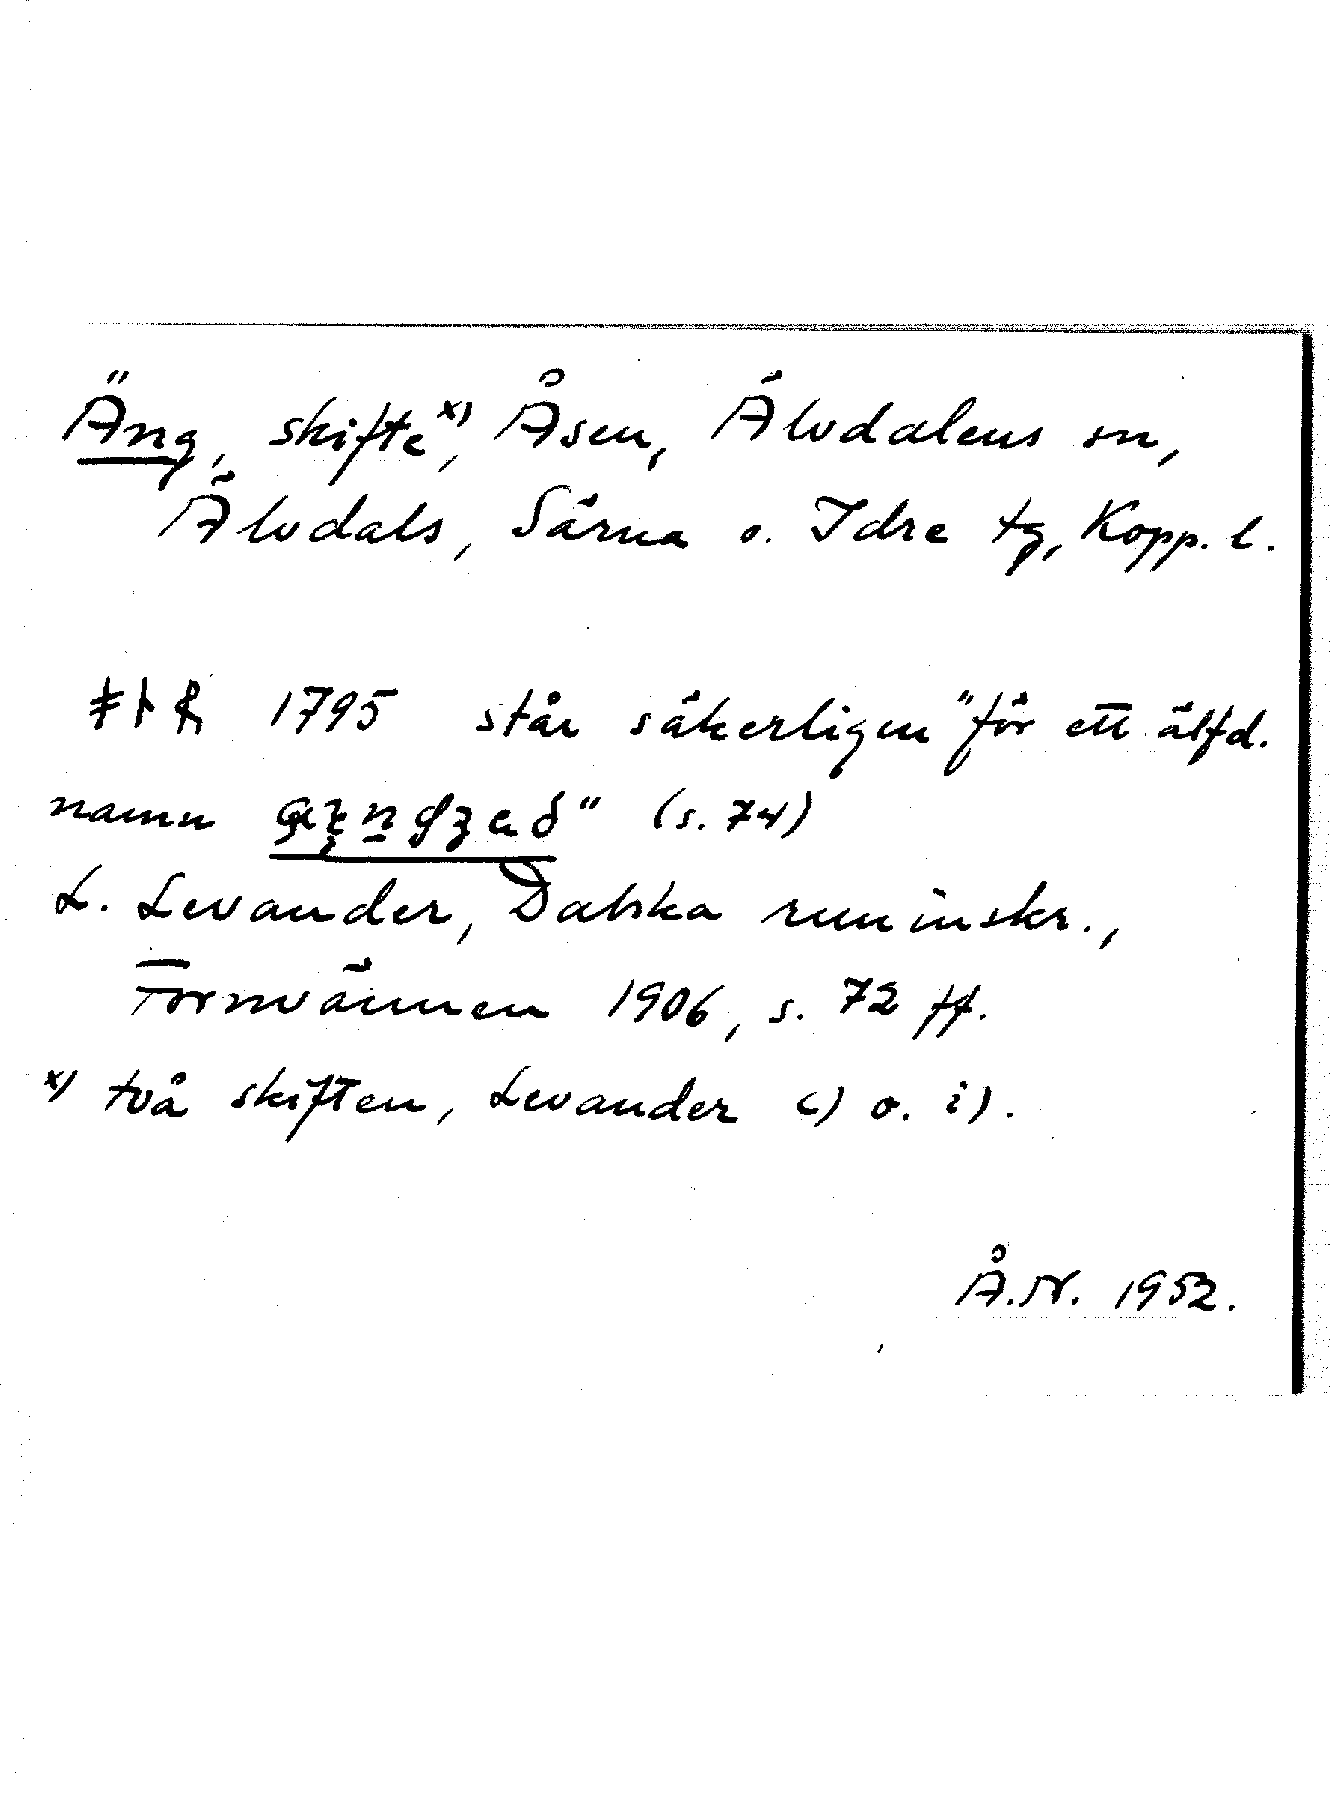 Äng, skifte x), Åsen, Älvdalens sn,
Älvdals, Särna o. Idre tg, Kopp. l.
1795 står säkerligen "för ett älfd.
namn " (s. 74)
L. Levander, Dalska runinskr.,
Fornvännen 1906, s. 72 ff.
x) två skiften, Levander c) o. i).
Å.N. 1952.